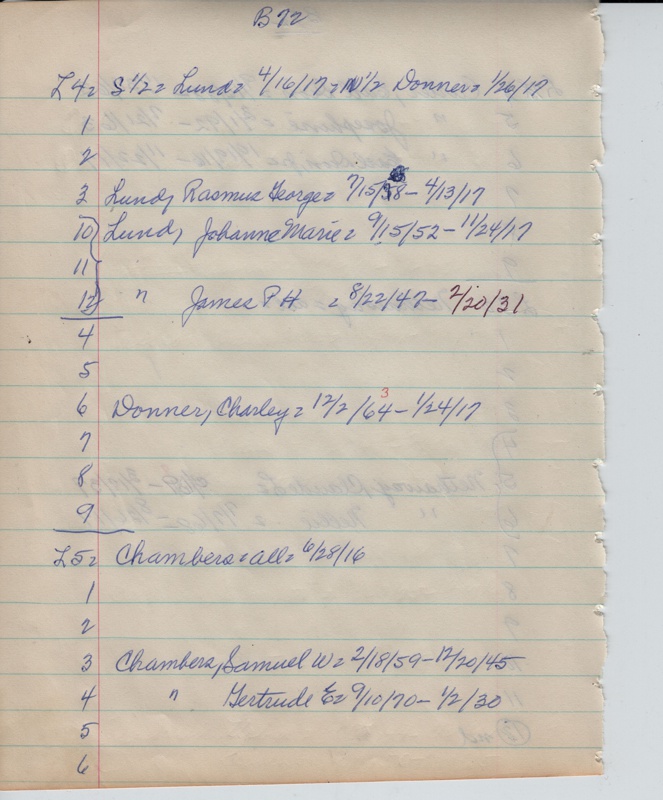 B 72
L4= S 1/2 = Lund = 4/16/17 = N 1/2 Donner = 1/26/17
1
2
3 Lund, Rasmus George = 7/15/88 - 4/13/17
10 Lund, Johanne Marie = 9/15/52 - 11/24/17
11
12 " James P H = 8/22/47 - 2/20/31
4
5
3
6 Donner, Charley = 12/2/64 - 1/24/17
7
8
9
L5= Chambers = all = 6/28/16
1
2
3 Chambers, Samuel W = 2/18/59 - 12/20/45
4 " Gertrude E = 9/10/70 - 1/2/30
5
6